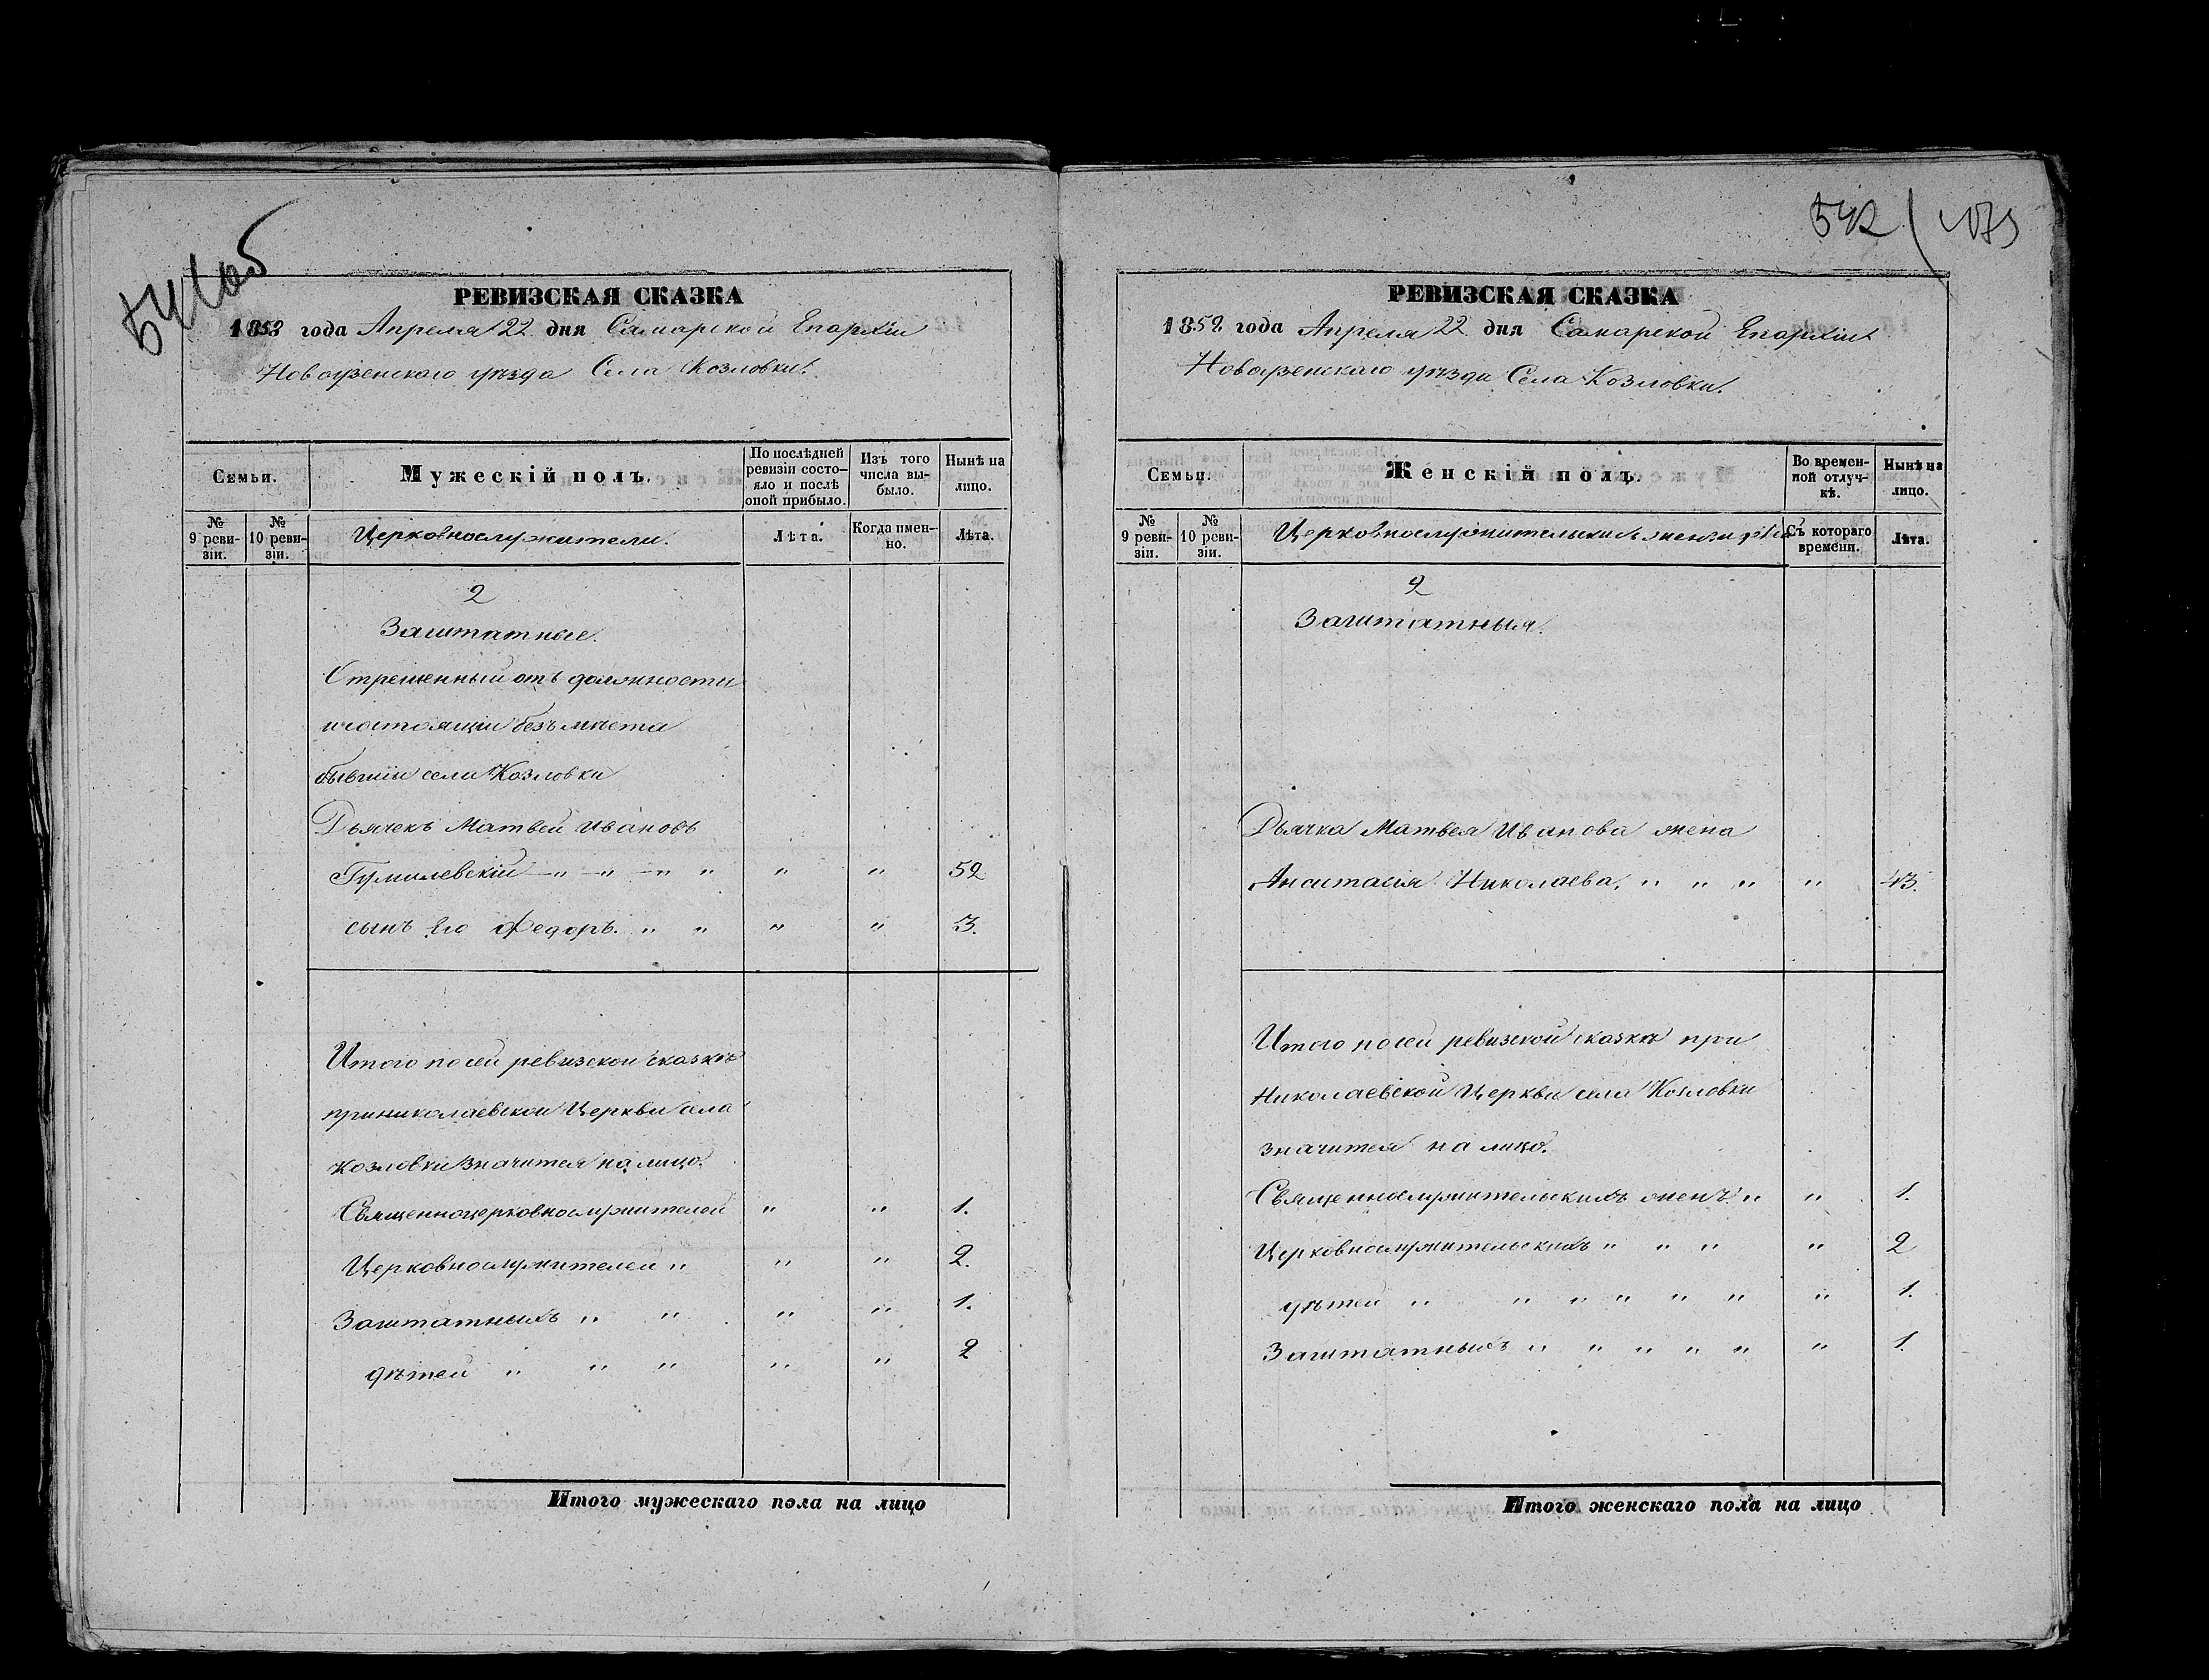 541 об
РЕВИЗСКАЯ СКАЗКА
1858 года Апреля 22 дня Самарской Епархіи
Новоузенскаго уѣзда Села Козловки.
Семьи.
Мужескій полъ.
По послѣдней ревизіи состо-яло и послѣ оной прибыло.
Изъ того числа вы-было.
Нынѣ на лицо.
№ 9 реви-зіи.
№ 10 реви-зіи.
Церковнослужители.
Лѣта.
Когда имен-но.
Лѣта.
2
Заштатные.
Отрешенный отъ должности
и состоящій безъ мѣста
бывшій села Козловки
Дьячекъ Матвей Ивановъ
Гумилевскій — " — " — " " " " 52
сынъ его Федоръ. " " " " 3.
Итого по сей ревизской сказкѣ
при николаевской Церкви села
Козловки значится на лицо.
Священноцерковнослужителей " " 1.
Церковнослужителей " " " 2.
Заштатныхъ " " " " 1.
дѣтей " " " " " 2
Итого мужескаго пола на лицо
542
РЕВИЗСКАЯ СКАЗКА
1858 года Апреля 22 дня Самарской Епархіи
Новоузенскаго уѣзда Села Козловки.
Семьи.
Женскій полъ.
Во времен-ной отлуч-кѣ.
Нынѣ на лицо.
№ 9 реви-зіи.
№ 10 реви-зіи.
Церковнослужительскихъ жены и
Съ котораго времени.
Лѣта.
2
Заштатныя.
Дьячка Матвея Иванова жена
Анситасія Николаева, " " " " 43.
Итого по сей ревизской сказкѣ при
Николаевской Церкви села Козловки
значится на лицо.
Священнослужительскихъ женъ " " 1.
Церковнослужительскихъ " " " " 2
дѣтей " " " " " " " 1.
Заштатныхъ " " " " " " 1.
Итого женскаго пола на лицо